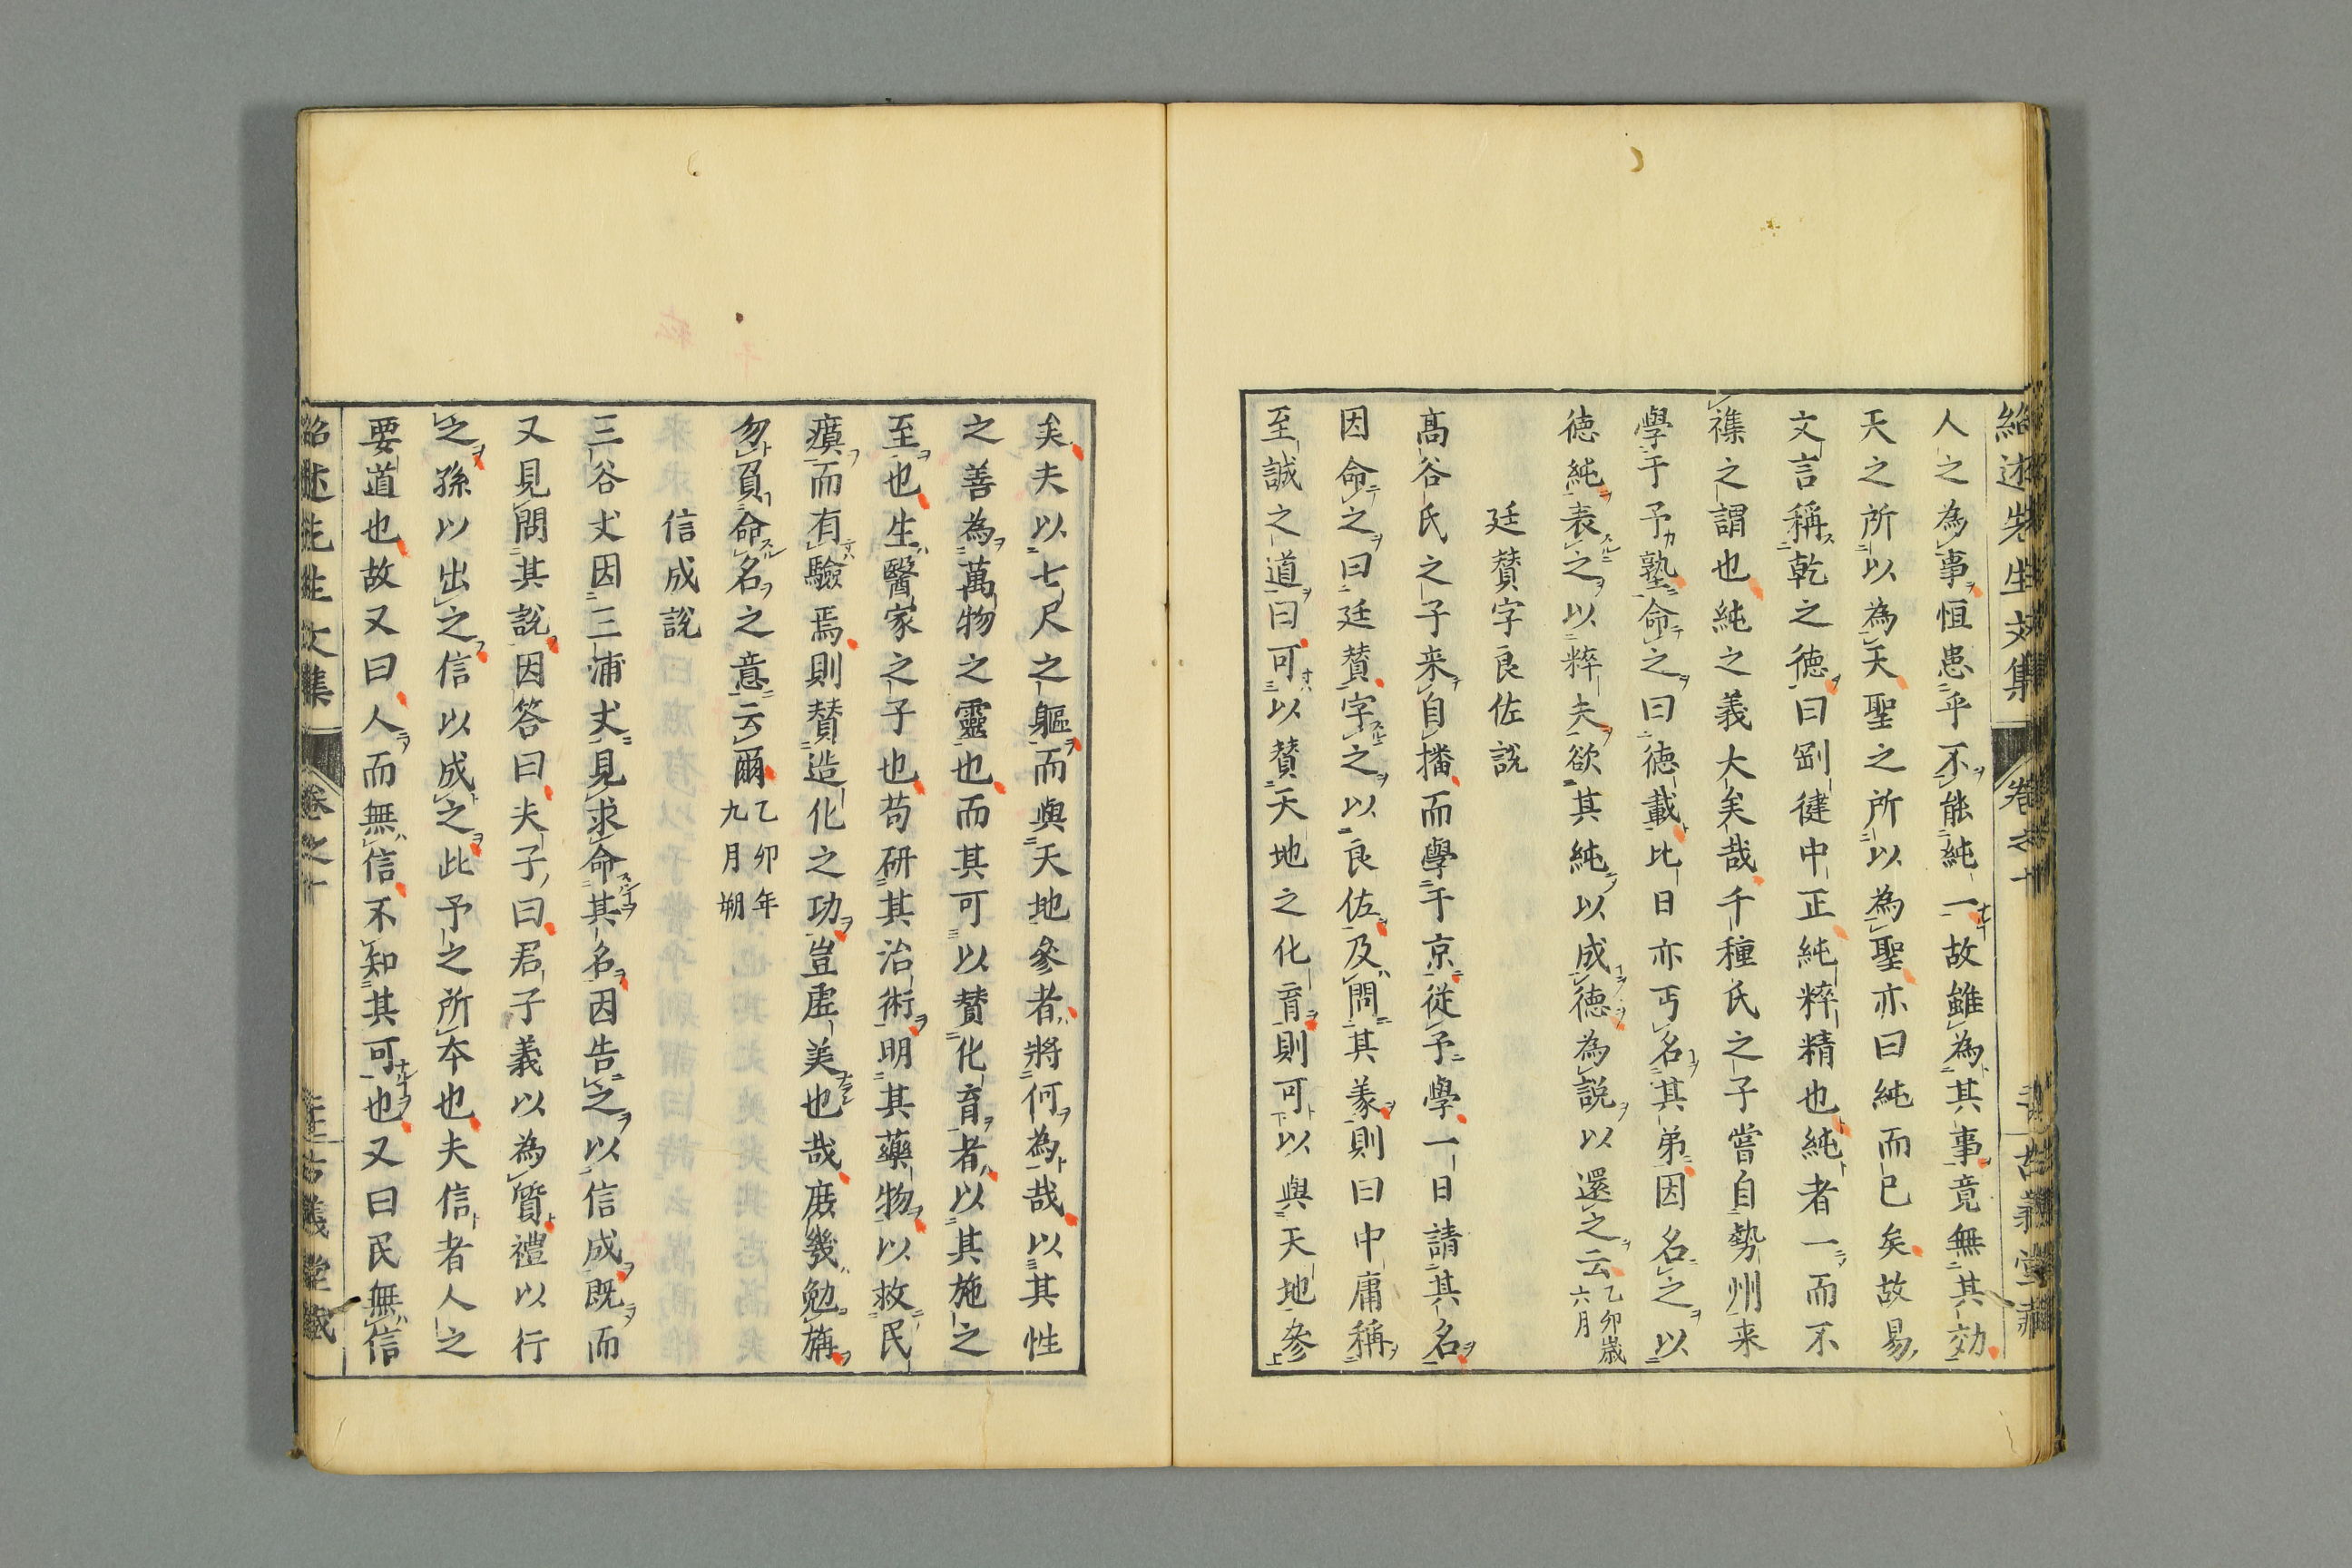 紹述先生文集 卷之十 古義堂藏
人之為事恒患乎不能純一故雖為其事竟無其効
天之所以為天聖之所以為聖亦曰純而已矣故易
文言稱乾之徳曰剛健中正純粹精也純者一而不
襍之謂也純之義大矣哉千種氏之子嘗自勢州来
學于予塾命之曰徳載比日亦丐名其弟因名之以
徳純表之以粹夫欲其純以成徳為説以還之云乙卯歳六月
廷賛字良佐說
髙谷氏之子来自播而學于京從予學一日請其名
因命之曰廷賛字之以良佐及問其義則曰中庸稱
至誠之道曰可以賛天地之化育則可以與天地參
矣夫以七尺之軀而與天地參者將何為哉以其性
之善為萬物之靈也而其可以賛化育者以其施之
至也生醫家之子也苟研其治術明其藥物以救民
瘼而有驗焉則賛造化之功豈虛美也哉庻幾勉旃
勿負命名之意云爾乙卯年九月朔
信成說
三谷丈因三浦丈見求命其名因告之以信成既而
又見問其說因答曰夫子曰君子義以為質禮以行
之孫以出之信以成之此予之所夲也夫信者人之
要道也故又曰人而無信不知其可也又曰民無信
紹述先生文集 卷之十 古義堂藏